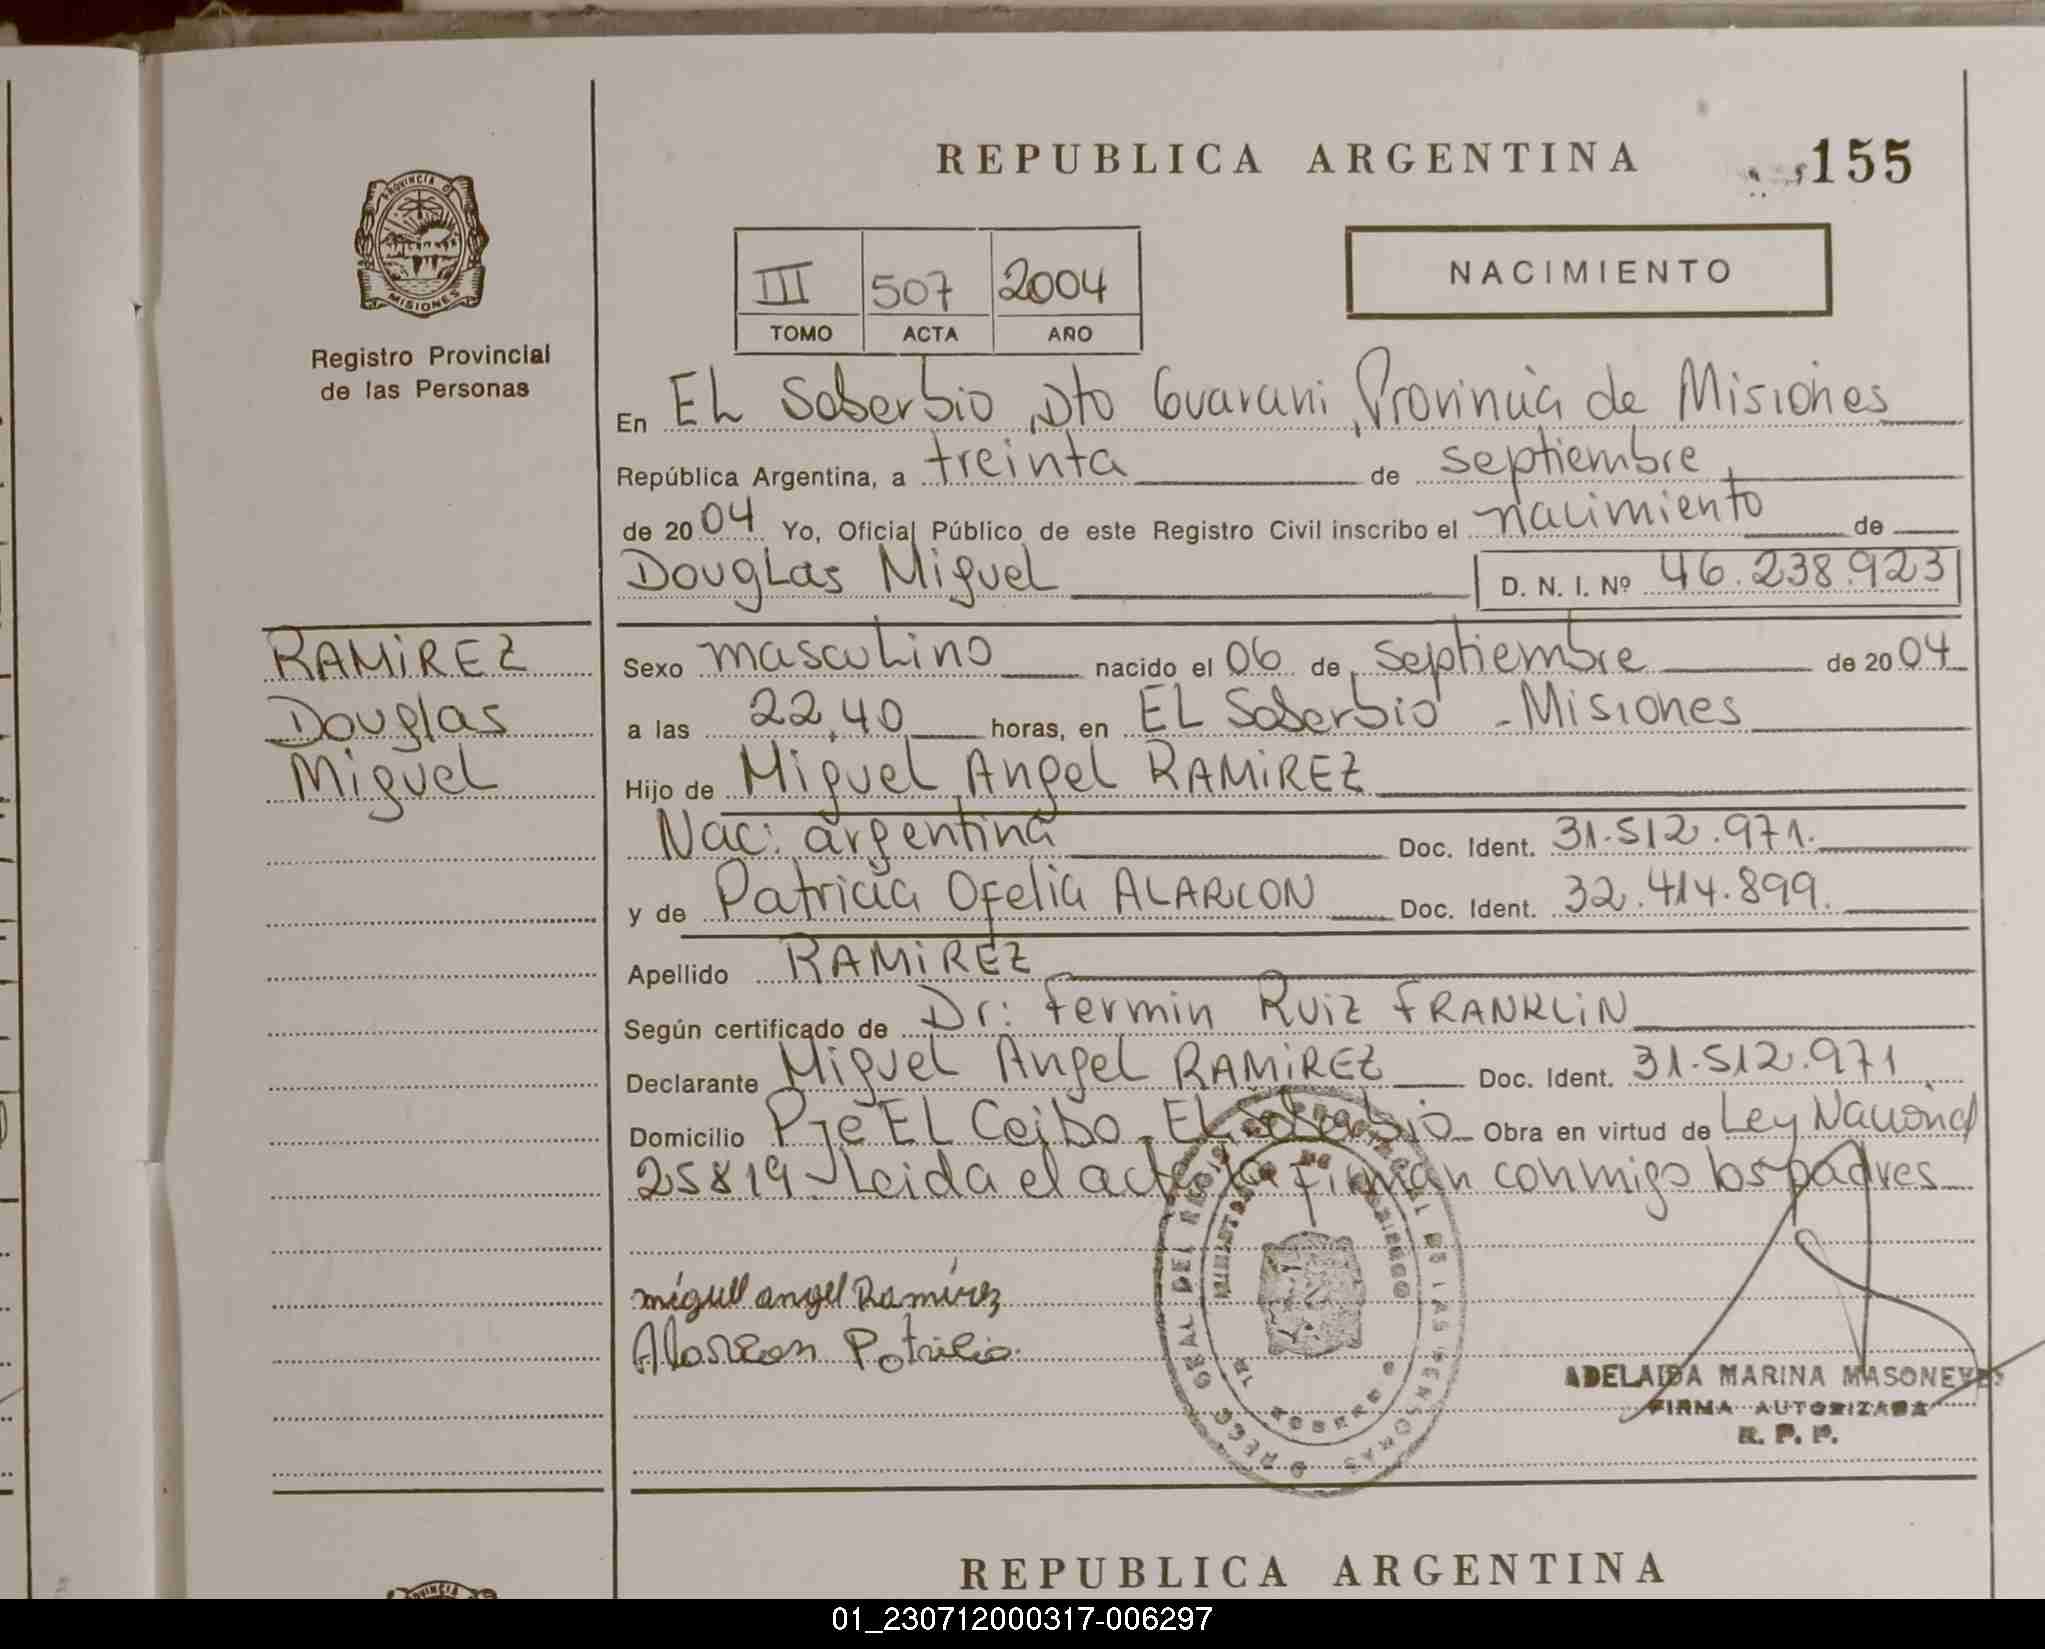 REPUBLICA ARGENTINA
155
PROVINCIA DE
MISIONES
Registro Provincial
de las Personas
III 507 2004
TOMO ACTA AÑO
NACIMIENTO
En EL Soberbio, Dto Guarani, Provincia de Misiones
República Argentina, a treinta de septiembre,
de 2004 Yo, Oficial Público de este Registro Civil inscribo el nacimiento de
Douglas Miguel D. N. I. Nº 46.238.923
RAMIREZ
Douglas
Miguel
Sexo masculino nacido el 06 de septiembre de 2004
a las 22,40 horas, en EL Soberbio - Misiones
Hijo de Miguel Angel RAMIREZ
Nac: argentina Doc. Ident. 31.512.971.
y de Patricia Ofelia ALARCON Doc. Ident. 32.414.899.
Apellido RAMIREZ
Según certificado de Dr: Fermin Ruiz FRANKLIN
Declarante Miguel Angel RAMIREZ Doc. Ident. 31.512.971
Domicilio Pje EL Ceibo, EL Soberbio Obra en virtud de Ley Nacional
25819 - Leida el acta la firman conmigo los padres
miguel angel Ramírez
Alarcon Patricia
ADELAIDA MARINA MASONEVES
FIRMA AUTORIZADA
R. P. P.
REPUBLICA ARGENTINA
PROVINCIA
01_230712000317-006297